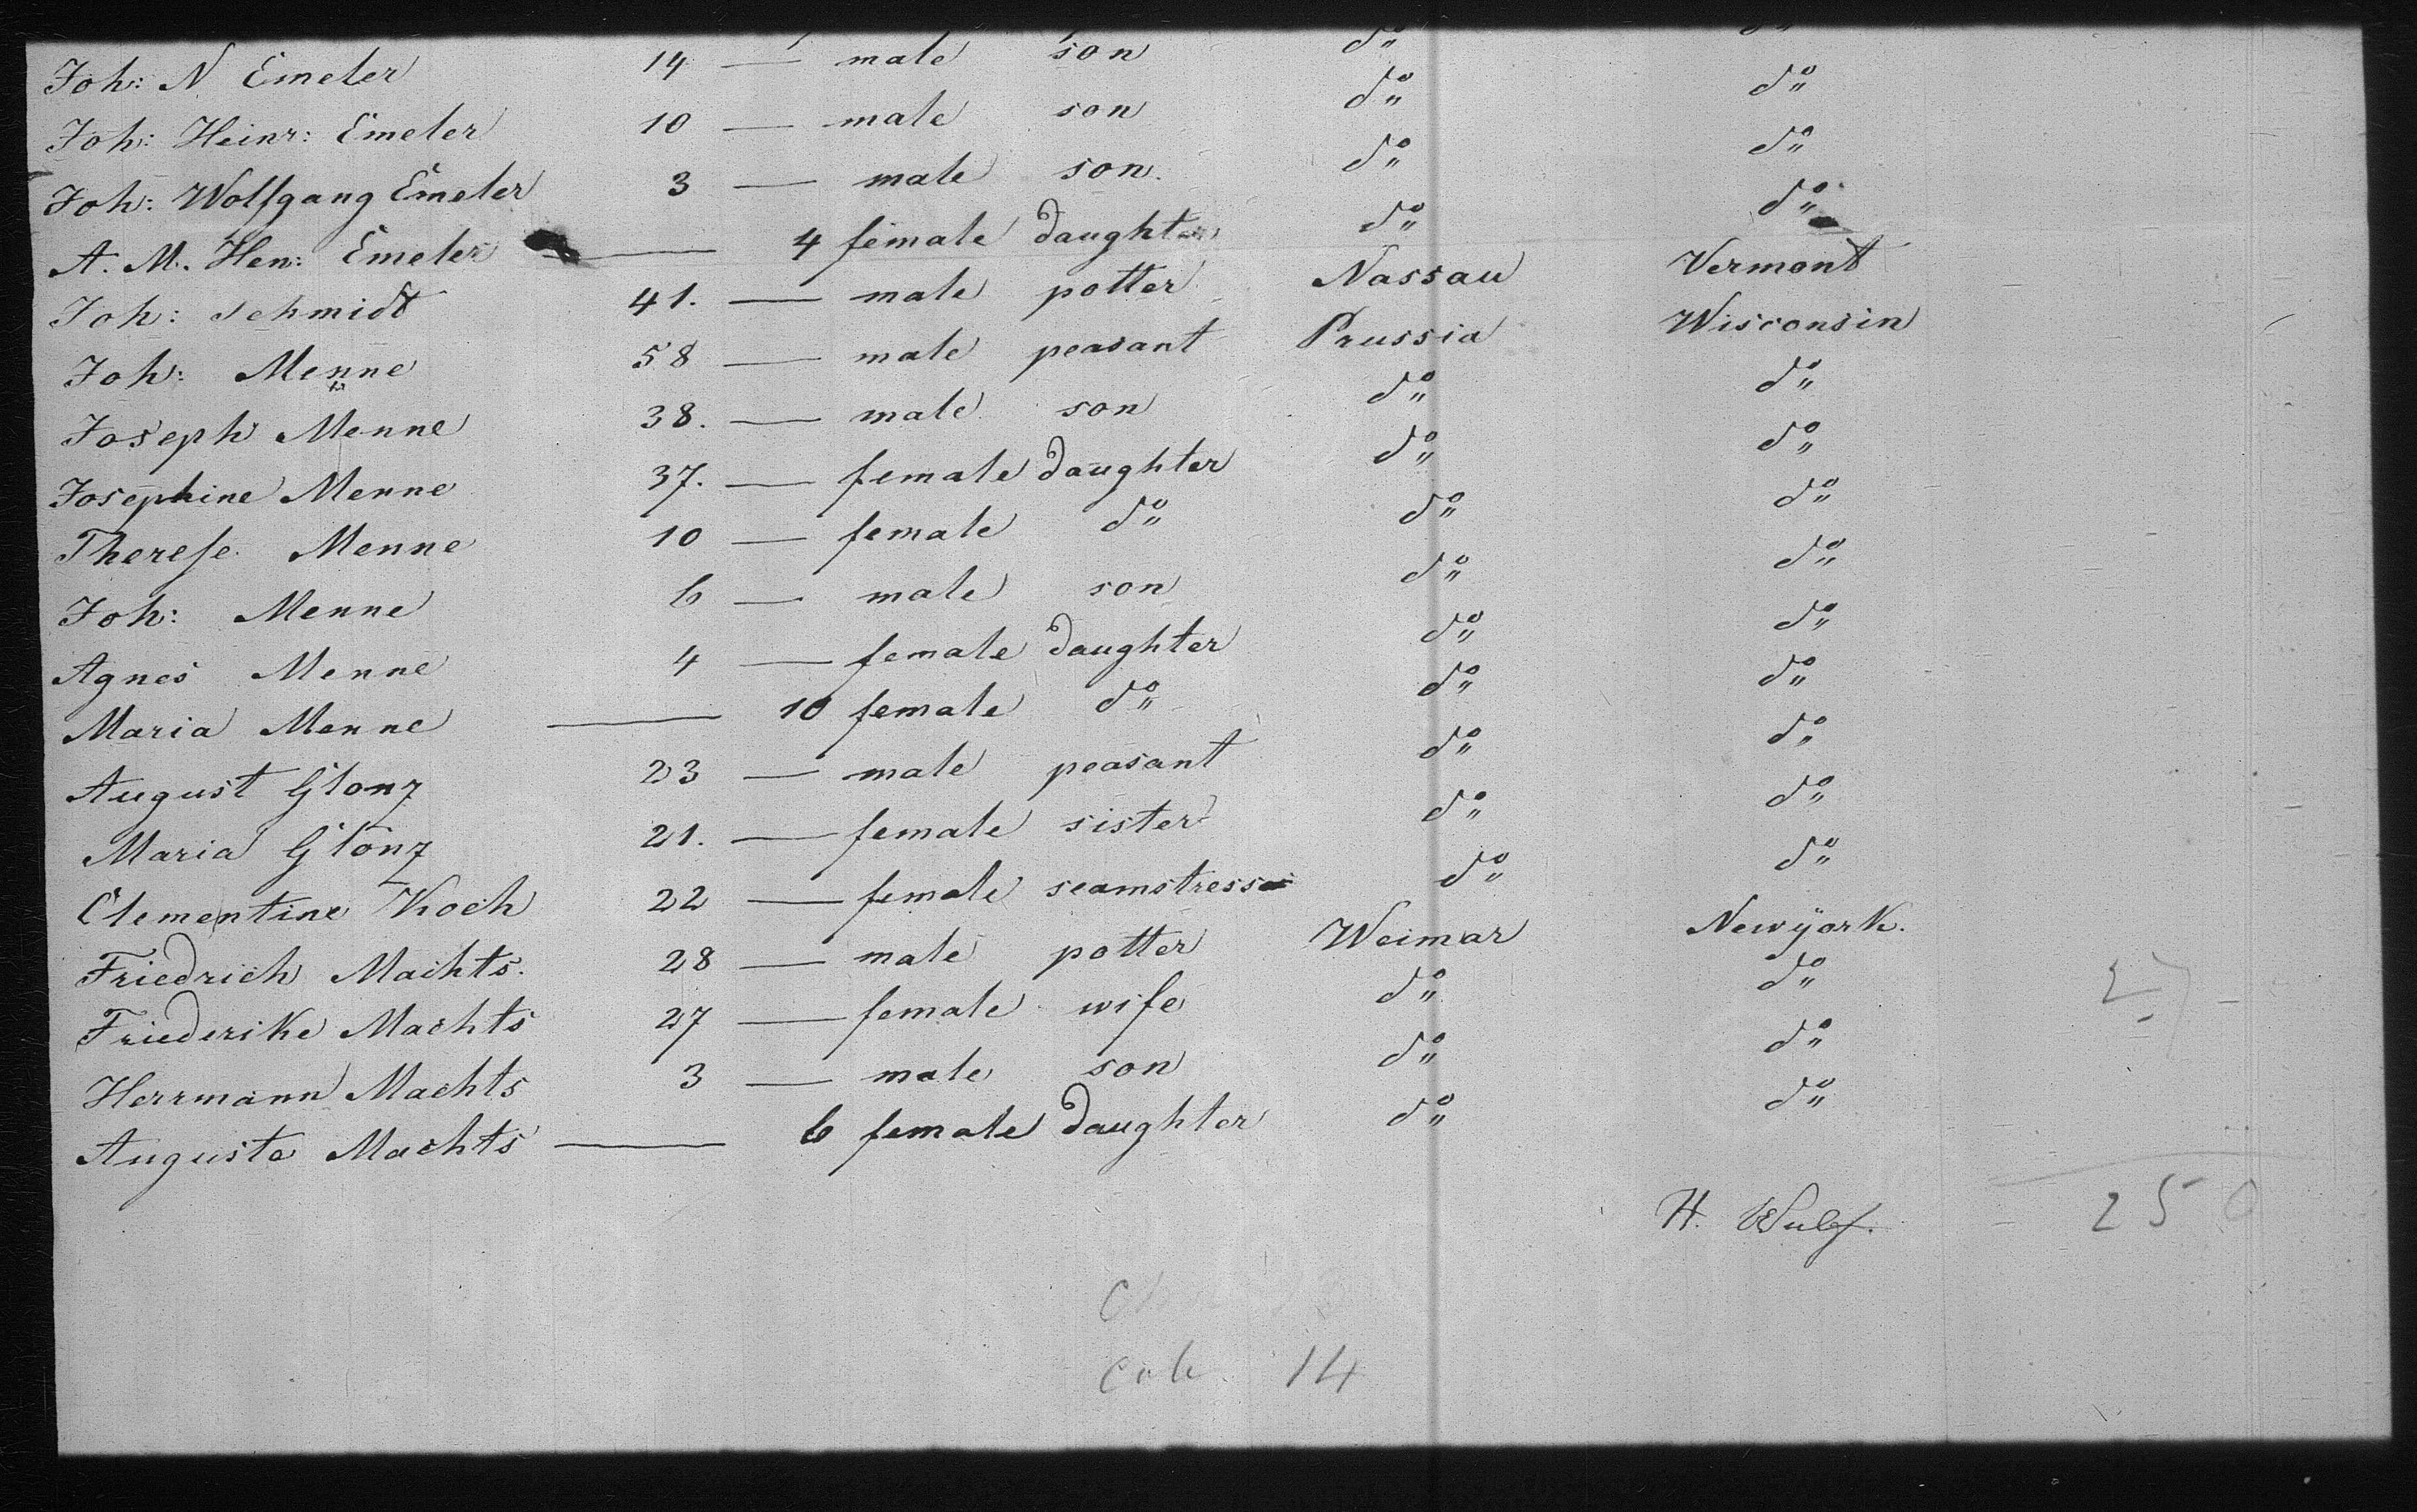 Joh: N Emeler 14 — male son do do
Joh: Heinr: Emeler 10 — male son do do
Joh: Wolfgang Emeler 3 — male son. do do
A. M. Hen: Emeler — 4 female daughter do do
Joh: Schmidt 41. — male potter Nassau Vermont
Joh: Menne 58 — male peasant Prussia Wisconsin
Joseph Menne 38. — male son do do
Josephine Menne 37. — female daughter do do
Therese Menne 10 — female do do do
Joh: Menne 6 — male son do do
Agnes Menne 4 — female daughter do do
Maria Menne — 10 female do do do
August Glonz 23 — male peasant do do
Maria Glonz 21. — female sister do do
Clementine Koch 22 — female seamstress do do
Friedrich Machts. 28 — male potter Weimar Newÿork.
Friederike Machts 27 — female wife do do
Herrmann Machts 3 — male son do do
Auguste Machts — 6 female daughter do do
H. Wulf. 250
14